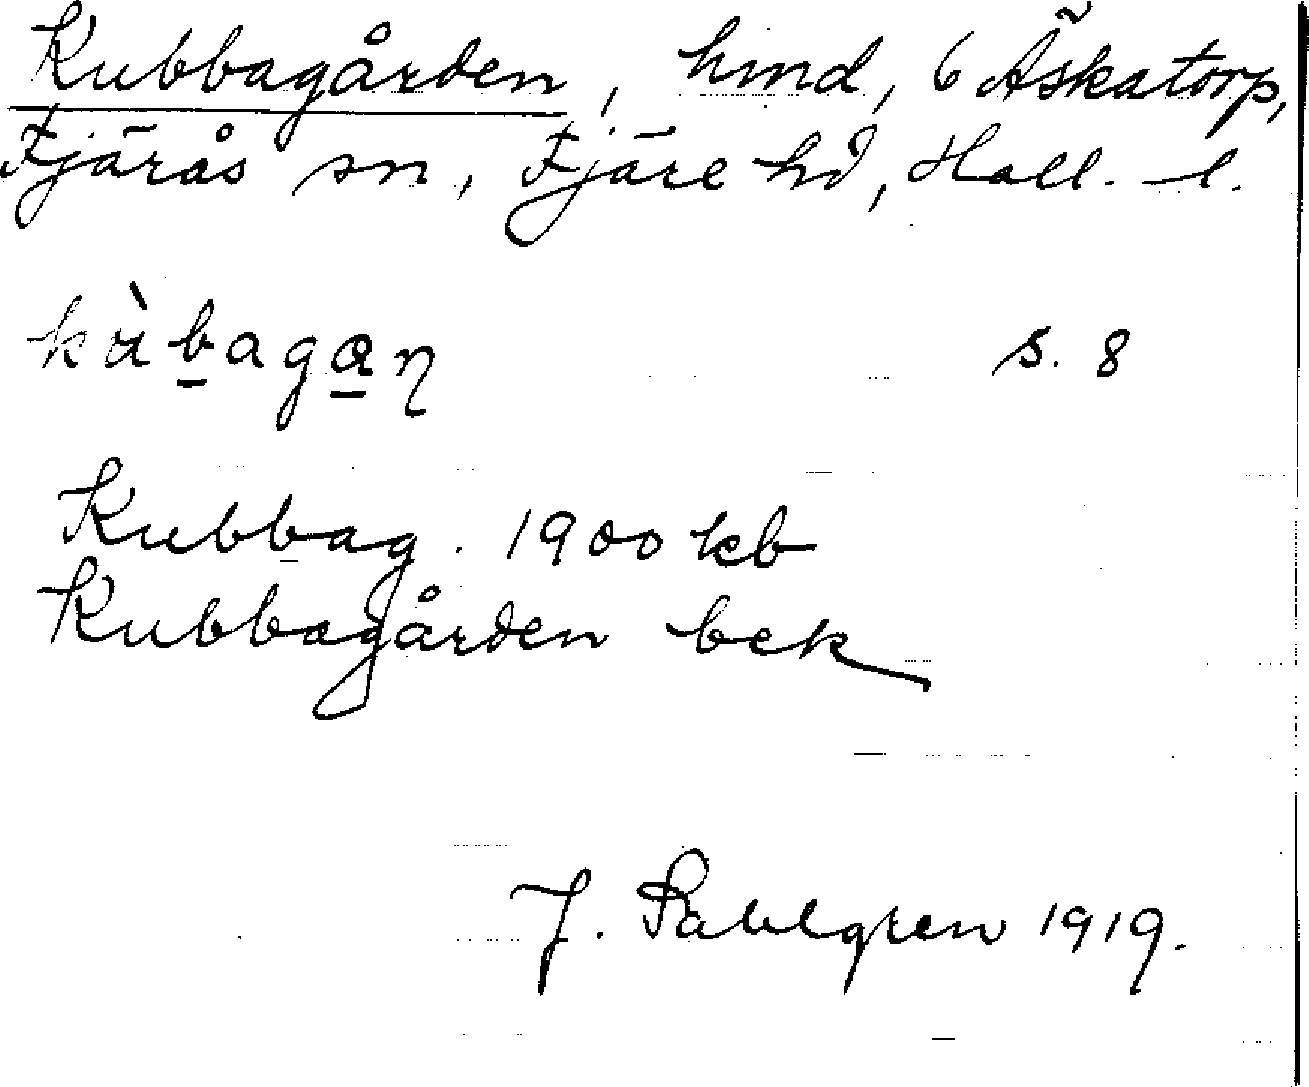 Kubbagården, hmd, 6 Åskatorp,
Fjärås sn, Fjäre hd, Hall. l.
kùbagaɳ s. 8
Kubbag. 1900 kb
Kubbagården bek
J. Sahlgren 1919.